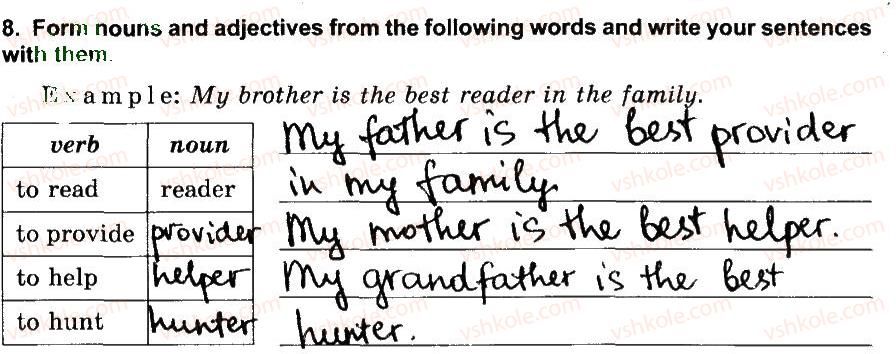 8. Form nouns and adjectives from the following words and write your sentences
with them.
Example: My brother is the best reader in the family.
verb noun
to read reader
to provide provider
to help helper
to hunt hunter
My father is the best provider
in my family.
My mother is the best helper.
My grandfather is the best
hunter.